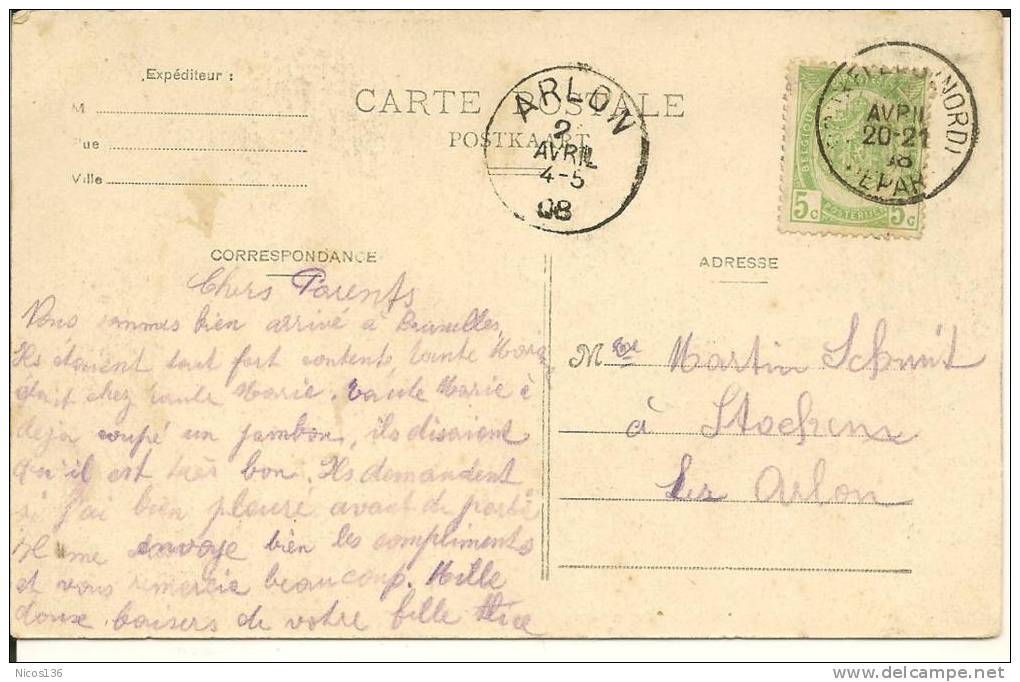 Expéditeur :
M
Rue
Ville
CARTE POSTALE
POSTKAART
ARLON
2
AVRIL
4-5
08
(NORD)
AVRIL
20-21
08
DEPART
BELGIQUE
POSTERIJEN
5c 5c
CORRESPONDANCE
Chers Parents
Nous sommes bien arrivé à Bruxelles,
Ils étaient tout fort contents, tante
était chez tante Marie. Tante Marie à
deja coupé un jambon, ils disaient
qu'il est très bon. Ils demandent
si j'ai bien pleuré avant de partir
Il me envoye bien les compliments
et vous remercie beaucoup. Mille
doux baisers de votre fille Alice
ADRESSE
Martin Schmit
à Stockem
Lez Arlon
Nicos136
delcampe.net